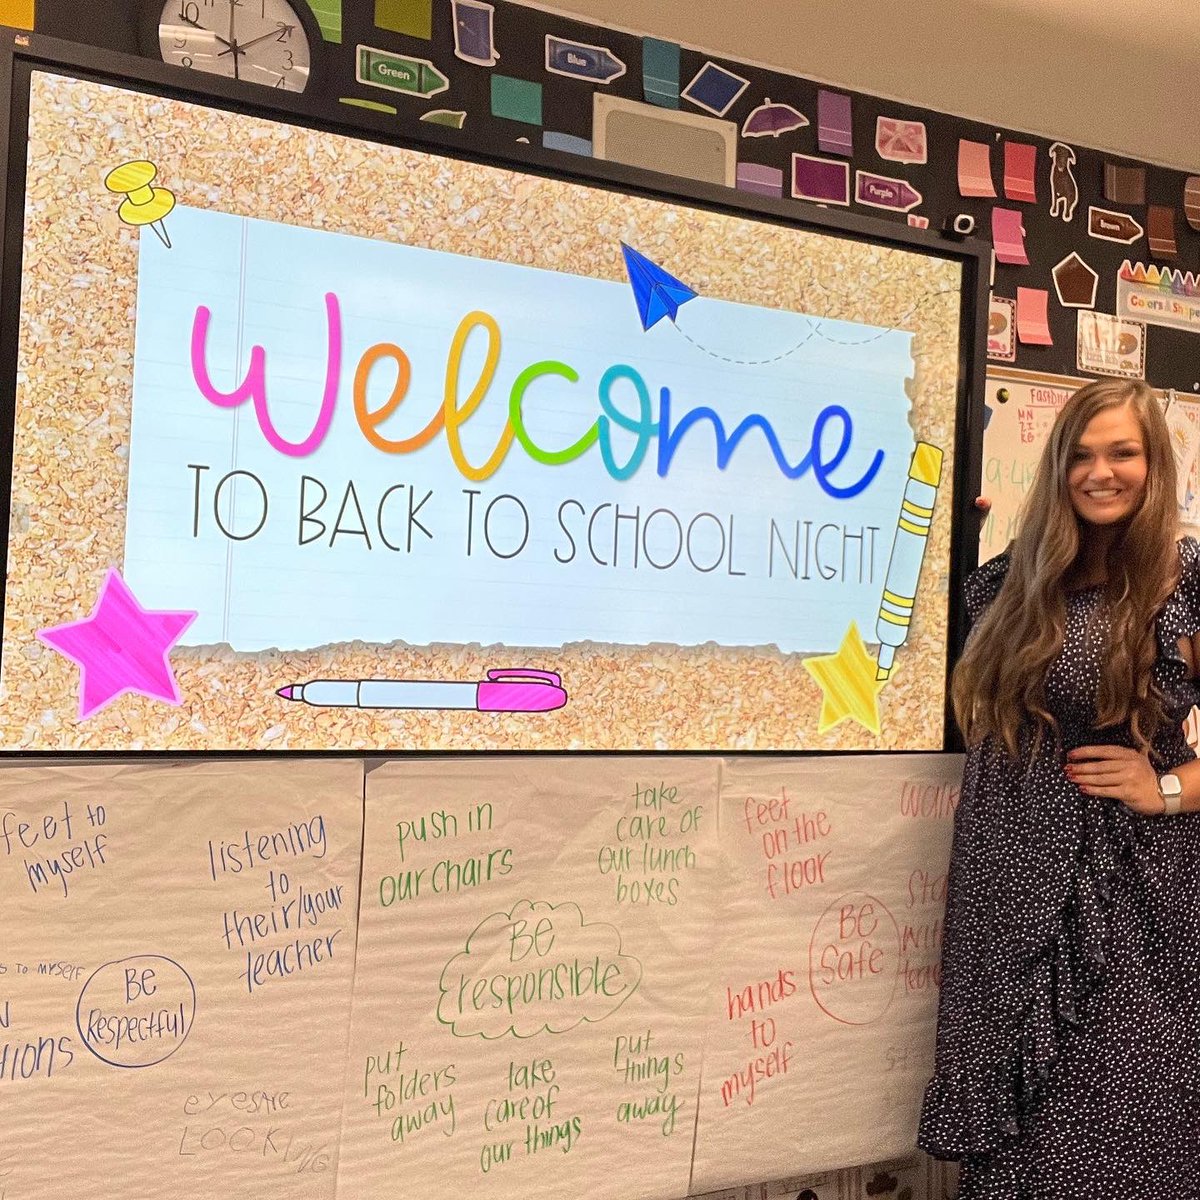 10
9
8
2
3
4
Green
Blue
Purple
Brown
Welcome
TO BACK TO SCHOOL NIGHT
MN
feet to
myself
listening
to
their/your
teacher
Be
Respectful
TO MYSELF
eyes are
LOOKING
push in
our chairs
take
care of
our lunch
boxes
Be
responsible
put
folders
away
take
care of
our things
put
things
away
feet
on the
floor
Be
Safe
hands
to
myself